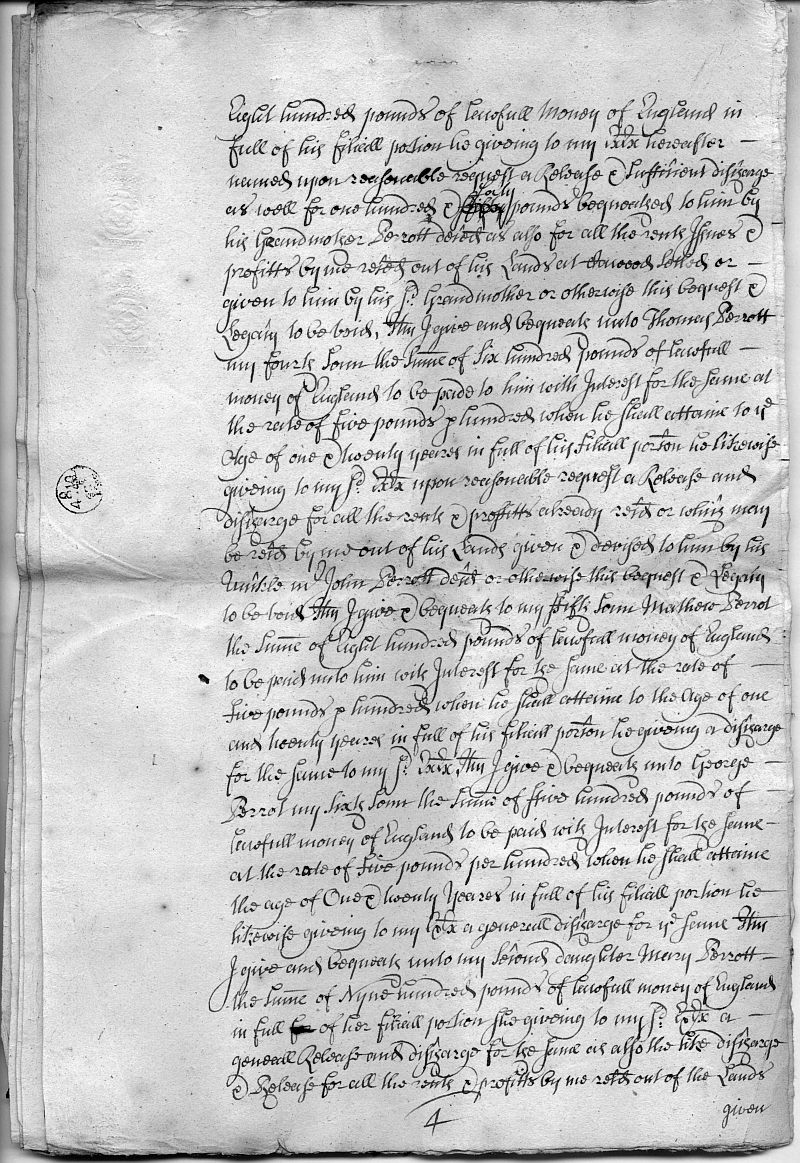 Eight hundred pounds of lawfull Money of England in
full of his filiall potion he giveing to my Exx hereafter —
named upon reasonable request a Release & sufficient discharge
as well for one hundred & forty pounds bequeathed to him by
his Grandmother Perrott deced as also for all the rents Issues &
profitts by me reced out of his Lands at setled or
given to him by his sd Grandmother or otherwise this bequest &
Legacy to be void, Itm I give and bequeath unto Thomas Perrott
my fourth Sonn the Sume of Six hundred pounds of lawfull —
money of England to be paide to him with Interest for the same at
the rate of five pounds p hundred when he shall attaine to ye
Age of one & twenty yeares in full of his filiall porcon he likewise
giving to my sd Exx upon reasonable request a Release and
discharge for all the rents & proffitts already reced or which may
be reced by me out of his Lands given & devised to him by his
Unckle mr John Perrott deced or otherwise this bequest & Legacy
to be void Itm I give & bequeath to my fifth Sonn Mathew Perrot
the Sume of Eight hundred pounds of lawfull money of England
to be paid unto him with Interest for the same at the rate of —
five pounds p hundred when he shall attaine to the Age of one
and twenty yeares in full of his filiall porcon he giveing a discharge
for the same to my sd Exx Itm I give & bequeath unto George
Perrot my sixth Sonn the Sume of five hundred pounds of —
lawfull money of England to be paid with Interest for the same —
at the rate of five pounds per hundred when he shall attaine
the age of One & twenty Yeares in full of his filiall portion he
likewise giveing to my Exx a generall discharge for ye same Itm
I give and bequeath unto my second daughter Mary Perrott —
the Sume of Nyne hundred pounds of lawfull money of England
in full of her filiall potion she giveing to my sd Exx a —
generall Release and discharge for the same as also the like discharge
& Release for all the rents & profitts by me reced out of the Lands
given
4